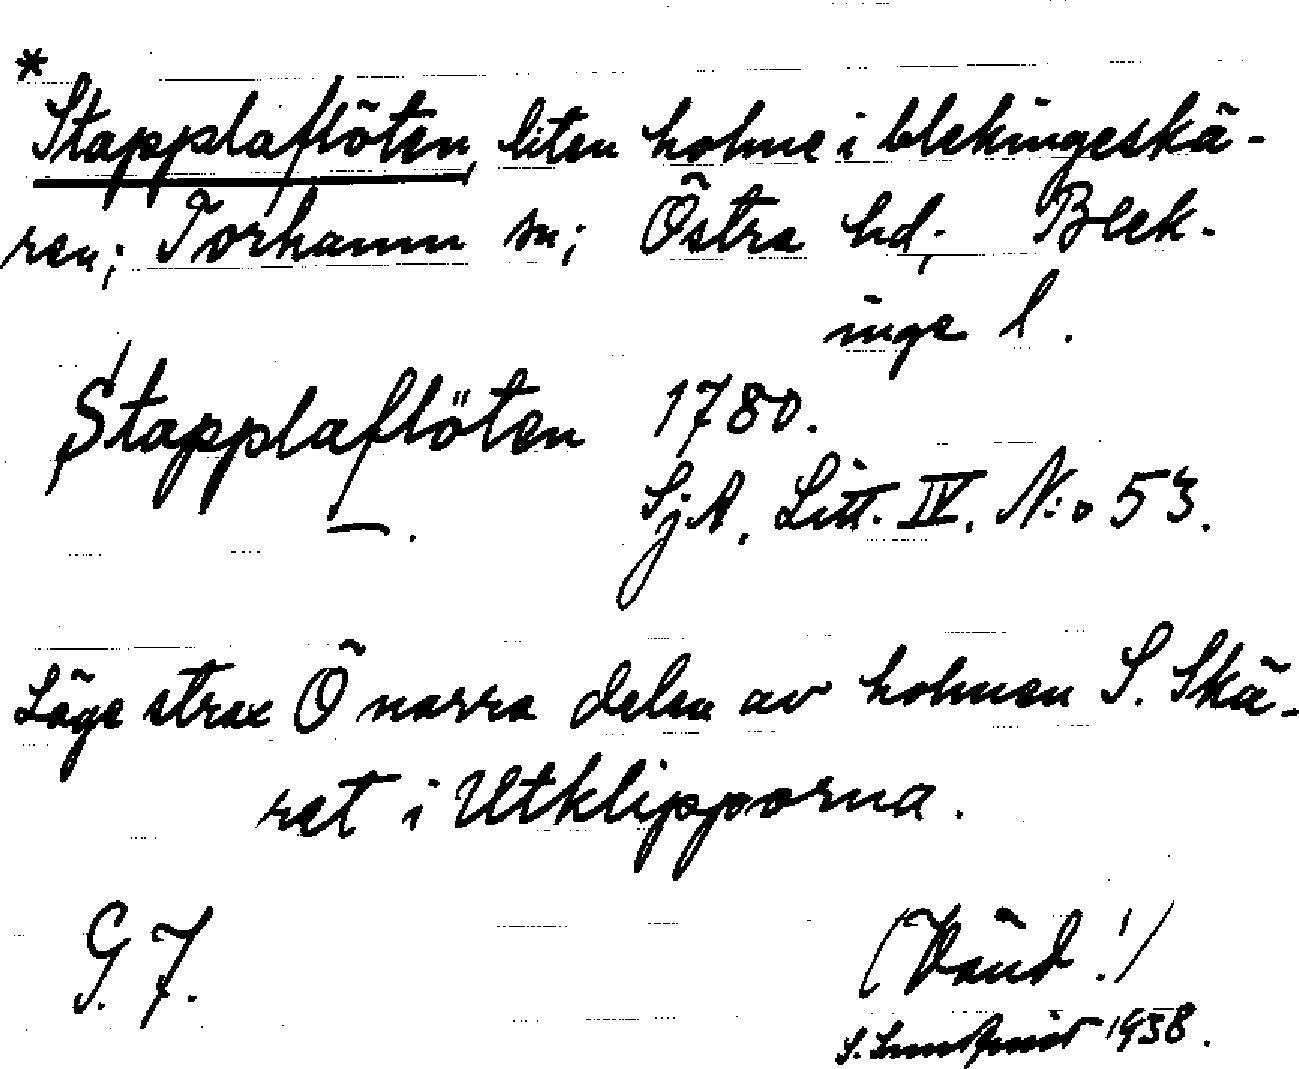 *
Stapplaflöten, liten holme i blekingeskä-
ren; Torhamn sn; Östra hd; Blek-
inge l.
Stapplaflöten 1780.
SjA, Litt. IV, N:o 53.
Läge strax Ö norra delen av holmen S. Skä-
ret i Utklipporna.
G. F.
(Vänd!)
S. Lundqvist 1938.